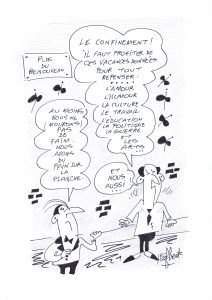 RUE
DU
RENOUVEAU
LE CONFINEMENT!
IL FAUT PROFITER DE
CES VACANCES DONNÉES
POUR TOUT
REPENSER:
L'AMOUR
L'HUMOUR
LA CULTURE
LE TRAVAIL
L'EDUCATION
LA POLITIQUE
LA GUERRE
ET
LES
ARTS
AU MOINS,
NOUS NE
MOURONS
PAS
DE
FAIM.
NOUS
AVONS
DU
PAIN SUR
LA
PLANCHE.
ET
NOUS
AUSSI